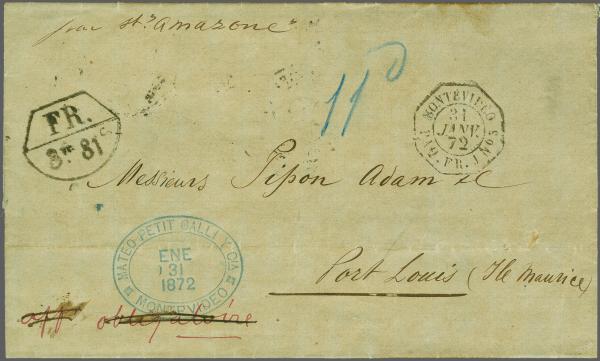 par Str "Amazone"
11d
FR.
3fr 81c
MONTEVIDEO
31
JANV.
72
PAQ. FR. J No 5
Messieurs Pipon Adam &c
MATEO PETIT GALLI Y CIA
ENE
31
1872
MONTEVIDEO
Port Louis (Ile Maurice)
aff obligatoire